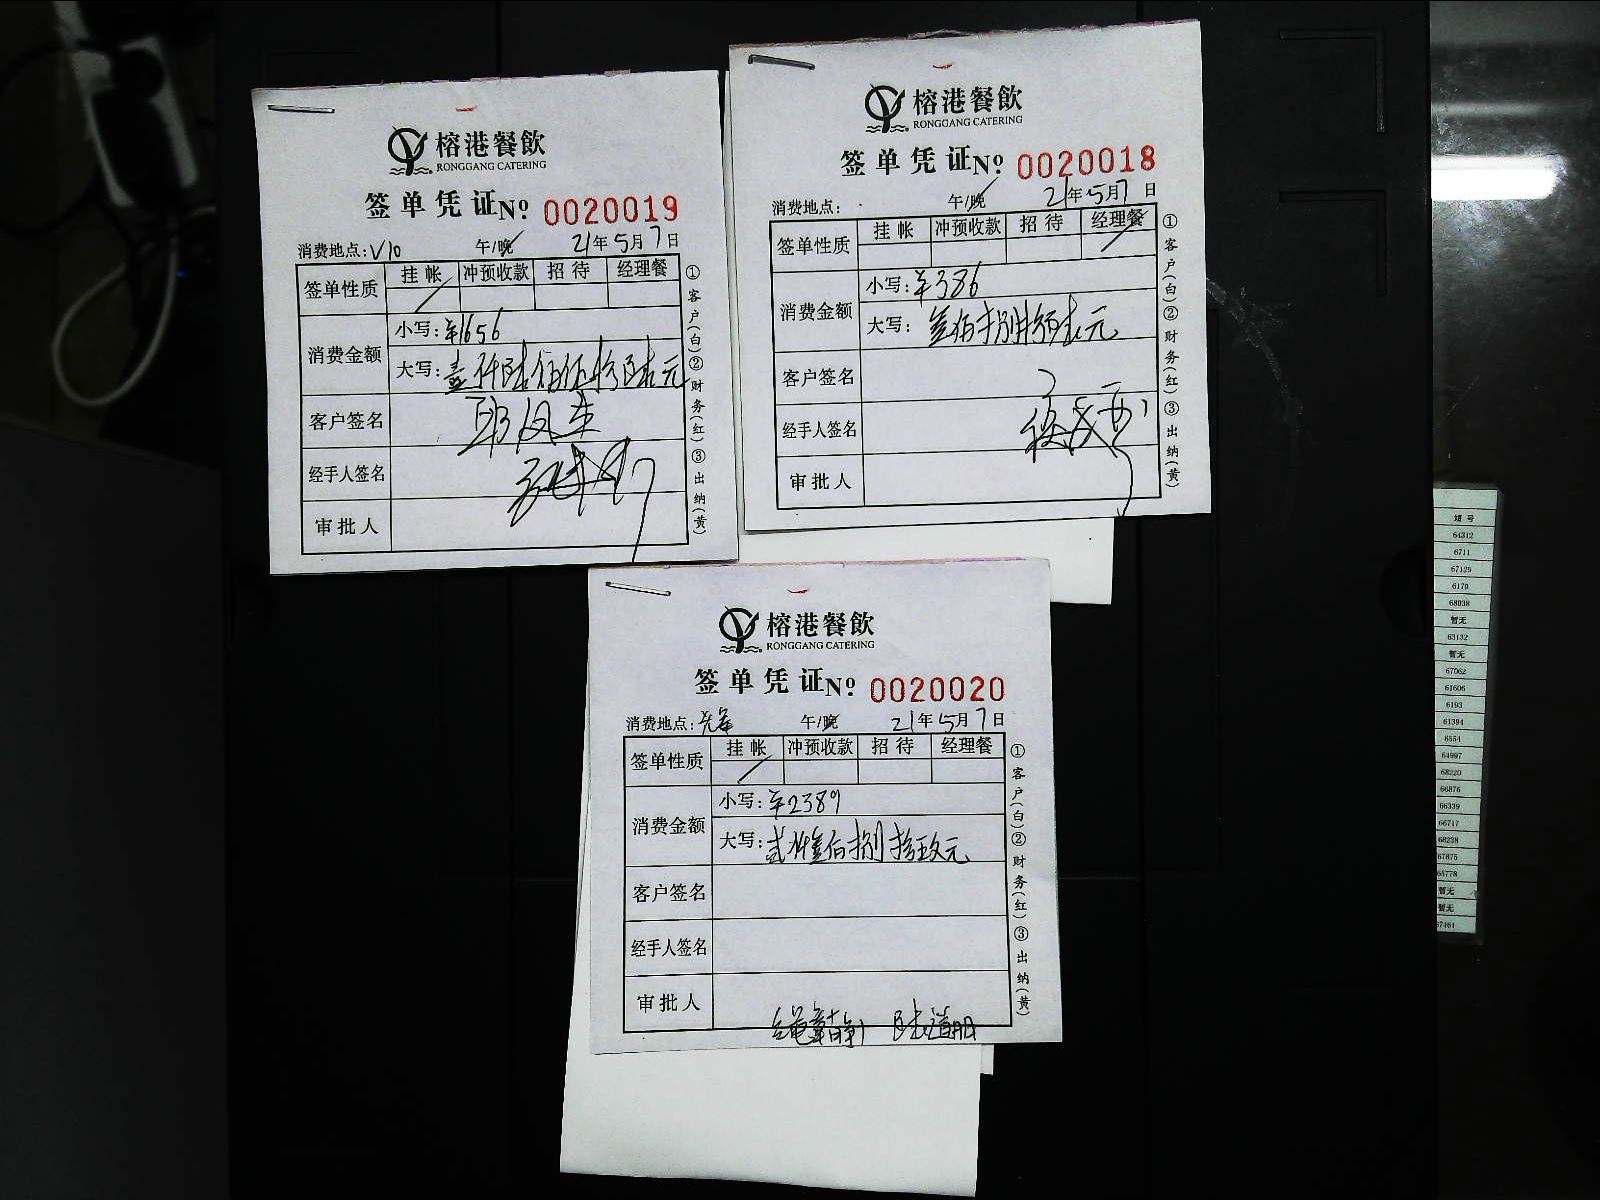 榕港餐飲
RONGGANG CATERING
签单凭证 № 0020019
消费地点: V10 午/晚 21年5月7日
签单性质 挂帐 冲预收款 招待 经理餐
消费金额
小写: ¥1656
大写: 壹仟陆佰伍拾陆元
客户签名
经手人签名
审批人
①客户(白)②财务(红)③出纳(黄)
榕港餐飲
RONGGANG CATERING
签单凭证 № 0020018
消费地点: 午/晚 21年5月7日
签单性质 挂帐 冲预收款 招待 经理餐
消费金额
小写: ¥386
大写: 叁佰捌拾陆元
客户签名
经手人签名
审批人
①客户(白)②财务(红)③出纳(黄)
榕港餐飲
RONGGANG CATERING
签单凭证 № 0020020
消费地点: 午/晚 21年5月7日
签单性质 挂帐 冲预收款 招待 经理餐
消费金额
小写: ¥2389
大写: 贰仟叁佰捌拾玖元
客户签名
经手人签名
审批人
①客户(白)②财务(红)③出纳(黄)
短号
64312
6711
67129
6170
68038
暂无
63132
暂无
67062
61606
6193
61394
6554
64997
68220
66876
66339
66717
68238
67875
65778
暂无
暂无
67461